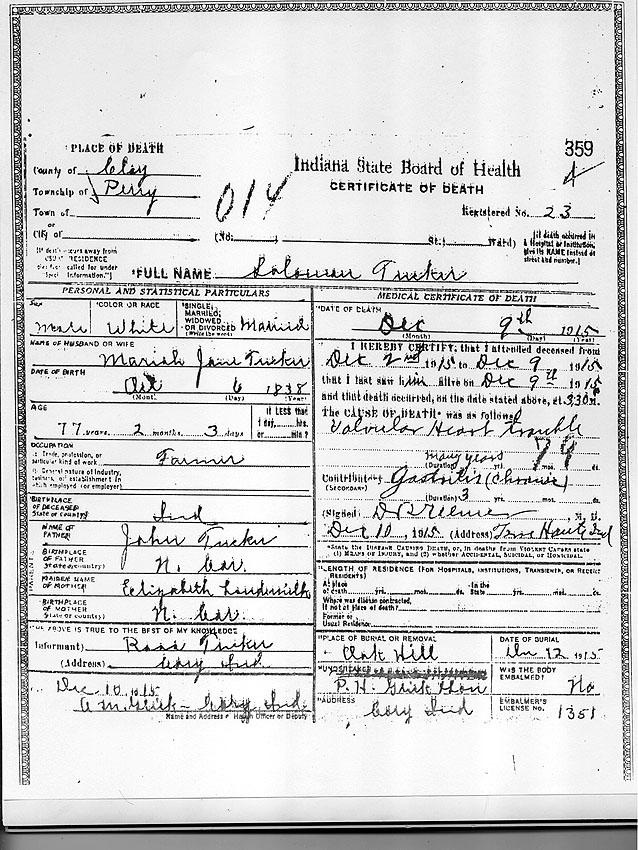 359
PLACE OF DEATH
County of Clay
Indiana State Board of Health
Township of Perry
CERTIFICATE OF DEATH
014
Town of
Registered No. 23
or
City of
(No:
St.;
Ward)
[If death occurred in
a Hospital or Institution,
give its NAME instead of
street and number.]
FULL NAME Soloman Tucker
PERSONAL AND STATISTICAL PARTICULARS
SEX
Male
COLOR OR RACE
White
SINGLE,
MARRIED,
WIDOWED
OR DIVORCED Married
(Write the word)
NAME OF HUSBAND OR WIFE
Mariah Jane Tucker
DATE OF BIRTH
Oct 6 1838
(Month) (Day) (Year)
AGE
77 years 2 months 3 days
If LESS than
1 day, hrs.
or min?
OCCUPATION
(a) Trade, profession, or
particular kind of work Farmer
(b) General nature of Industry,
business, or establishment in
which employed (or employer)
BIRTHPLACE
OF DECEASED
State or country) Ind
NAME OF
FATHER John Tucker
BIRTHPLACE
OF FATHER
State or country) N. Car.
MAIDEN NAME
OF MOTHER Elizabeth
BIRTHPLACE
OF MOTHER
State or country) N. Car.
PARENTS
THE ABOVE IS TRUE TO THE BEST OF MY KNOWLEDGE
Informant) Ross Tucker
(Address) Cory Ind.
Dec 10 1915
Cory Ind.
Name and Address of Health Officer or Deputy
MEDICAL CERTIFICATE OF DEATH
DATE OF DEATH
Dec 9th 1915
(Month) (Day) (Year)
I HEREBY CERTIFY, that I attended deceased from
Dec 2nd 1915 to Dec 9 1915
that I last saw him alive on Dec 9th 1915
and that death occurred, on the date stated above, at 3:30 m.
The CAUSE OF DEATH was as follows
Valvular Heart trouble
79
many years
(Duration) yrs. mos. ds.
Contributory Gastritis (chronic)
(SECONDARY)
(Duration) 3 yrs. mos. ds.
(Signed) M. D.
Dec 10, 1915 (Address) Terre Haute Ind
State the DISEASE CAUSING DEATH, or, in deaths from VIOLENT CAUSES state
(1) MEANS OF INJURY, and (2) whether ACCIDENTAL, SUICIDAL, or HOMICIDAL.
LENGTH OF RESIDENCE (FOR HOSPITALS, INSTITUTIONS, TRANSIENTS, OR RECENT
RESIDENTS)
At place
of death yrs. mos. ds.
In the
State yrs. mos. ds.
Where was disease contracted,
If not at place of death?
Former or
Usual Residence
PLACE OF BURIAL OR REMOVAL
Oak Hill
DATE OF BURIAL
Dec 12 1915
UNDERTAKER
WAS THE BODY
EMBALMED? No
ADDRESS
Cory Ind
EMBALMER'S
LICENSE NO. 1351